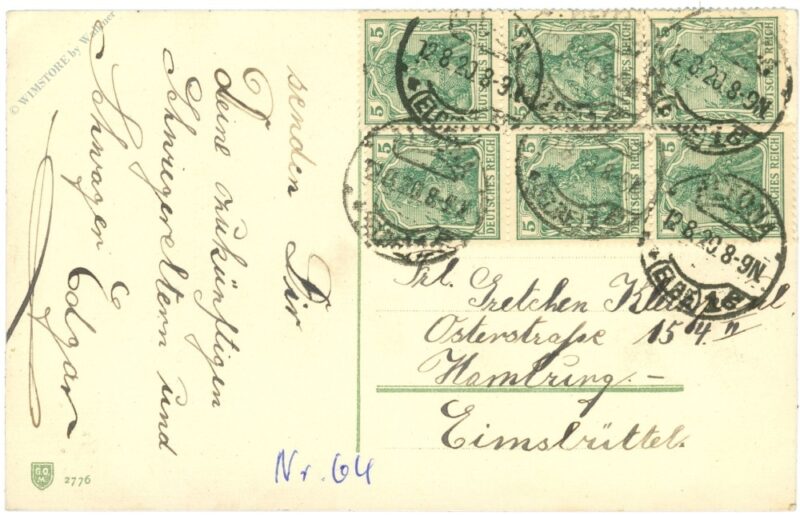 © WIMSTORE by W
senden Dir
Deine zukünftigen
Schwiegereltern und
Schwager Edgar
5
DEUTSCHES REICH
5
DEUTSCHES REICH
5
DEUTSCHES REICH
5
DEUTSCHES REICH
5
DEUTSCHES REICH
5
DEUTSCHES REICH
ALTONA
12.8.20.8-9N.
(ELBE) 1 E
Frl. Gretchen
Osterstraße 154 II
Hamburg. –
Eimsbüttel.
Nr. 64
G.O.
M.
2776